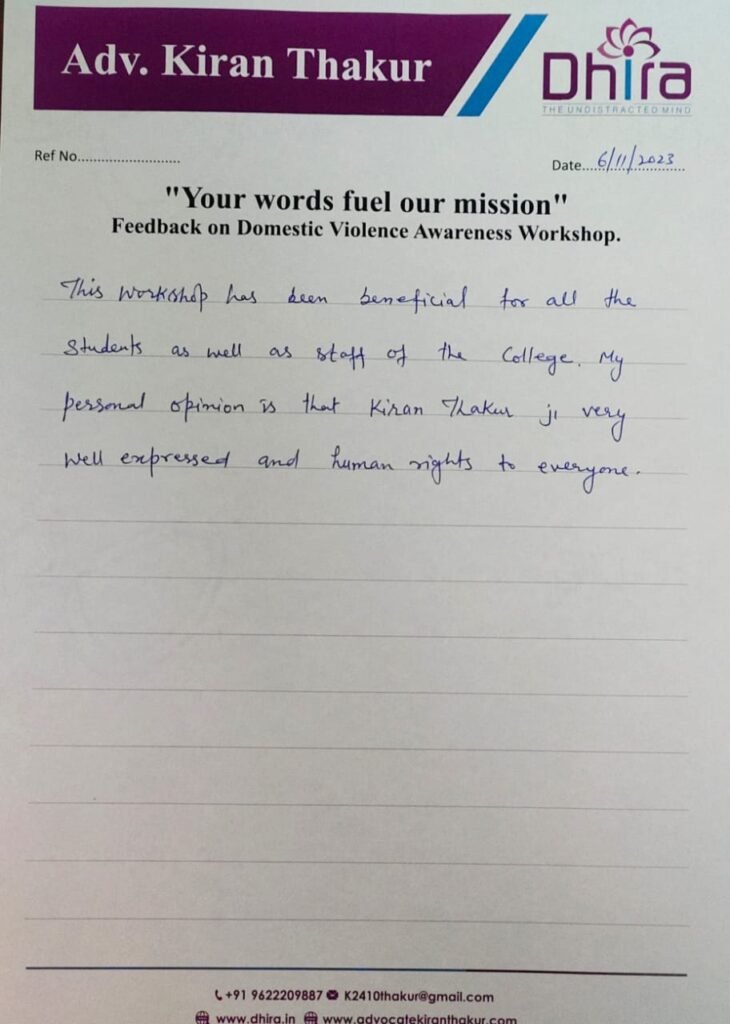 Adv. Kiran Thakur
Dhira
THE UNDISTRACTED MIND
Ref No..........................
Date....6/11/2023
"Your words fuel our mission"
Feedback on Domestic Violence Awareness Workshop.
This workshop has been beneficial for all the
students as well as staff of the College. My
personal opinion is that Kiran Thakur ji very
well expressed and human rights to everyone.
+91 9622209887 K2410thakur@gmail.com
www.dhira.in www.advocatekiranthakur.com